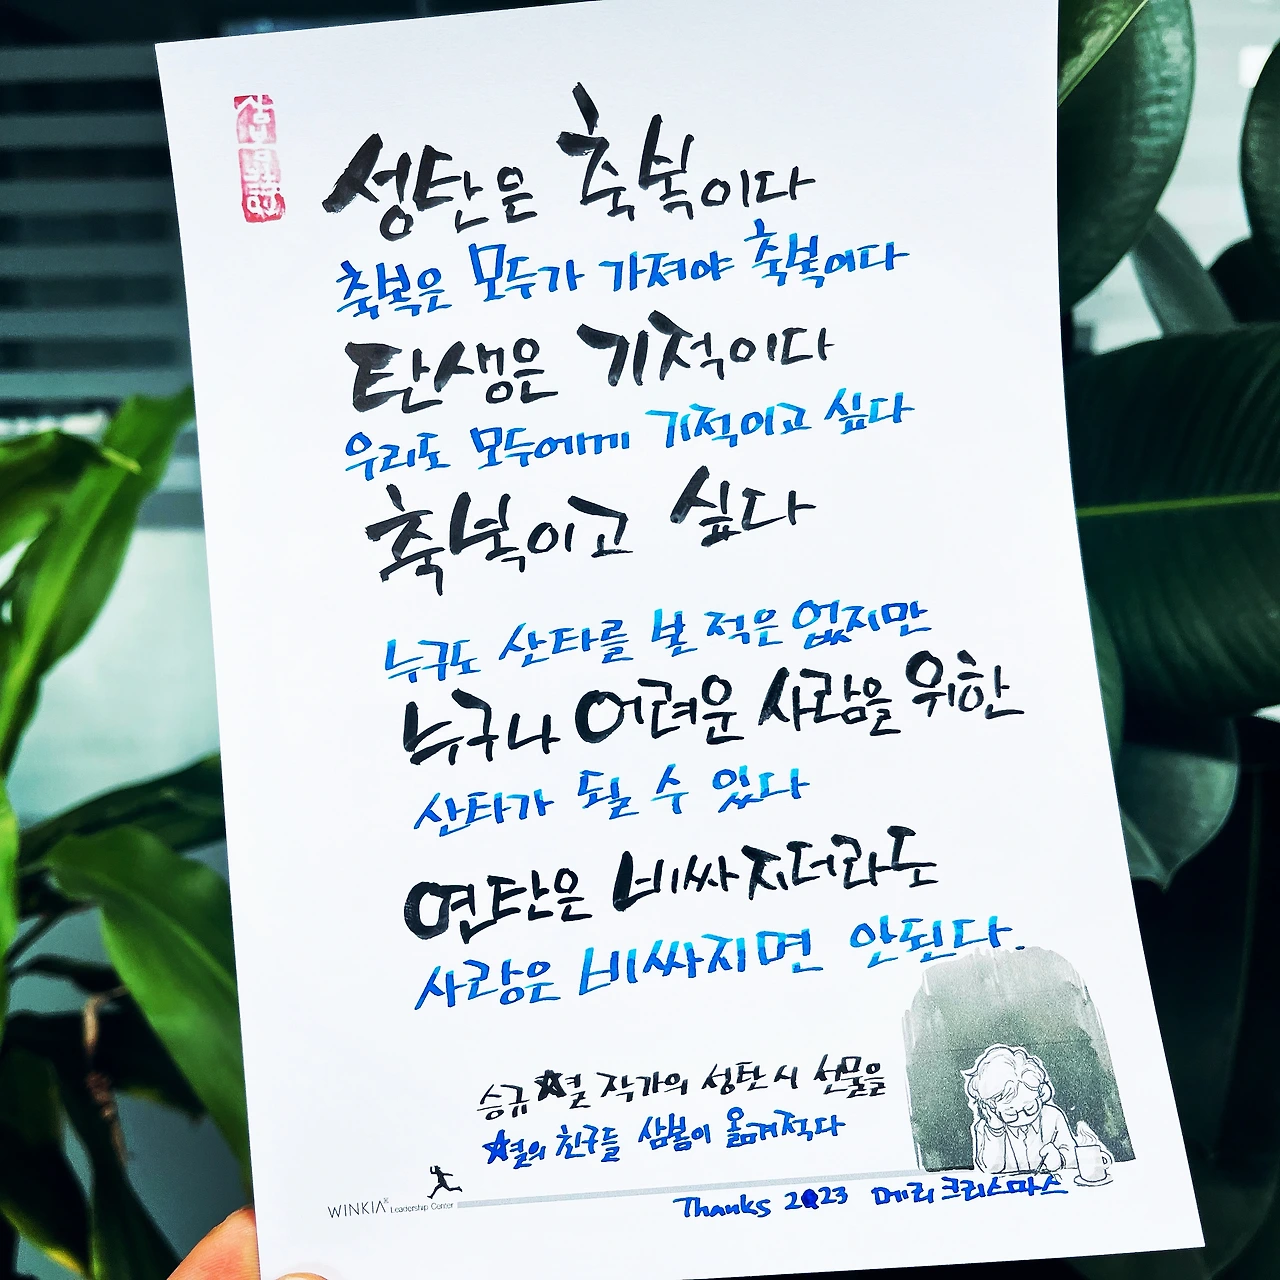 성탄은 축복이다
축복은 모두가 가져야 축복이다
탄생은 기적이다
우리도 모두에게 기적이고 싶다
축복이고 싶다
누구도 산타를 본 적은 없지만
누구나 어려운 사람을 위한
산타가 될 수 있다
연탄은 비싸지더라도
사랑은 비싸지면 안된다.
승규 작가의 성탄 시 선물을
친구들 삼봄이 옮겨적다
WINKIA Leadership Center
Thanks 2023 메리크리스마스